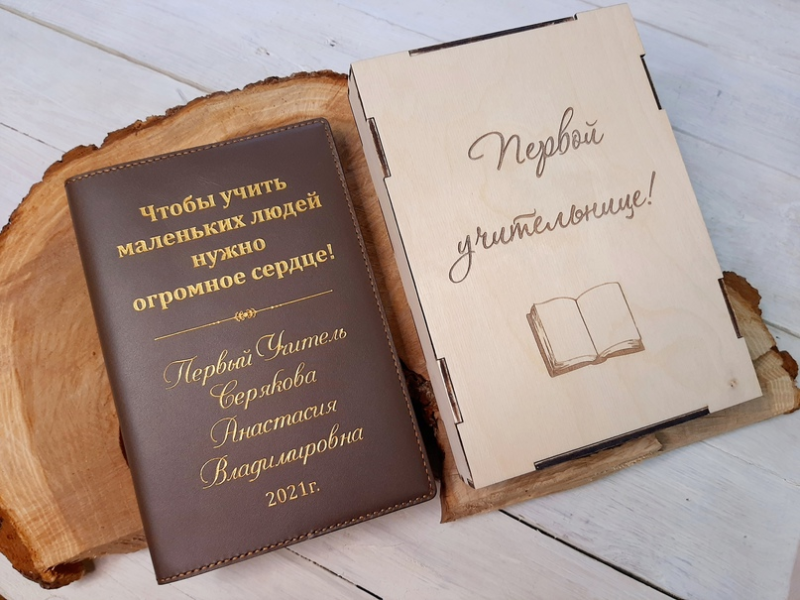 Чтобы учить
маленьких людей
нужно
огромное сердце!
Первый Учитель
Серякова
Анастасия
Владимировна
2021г.
Первой
учительнице!